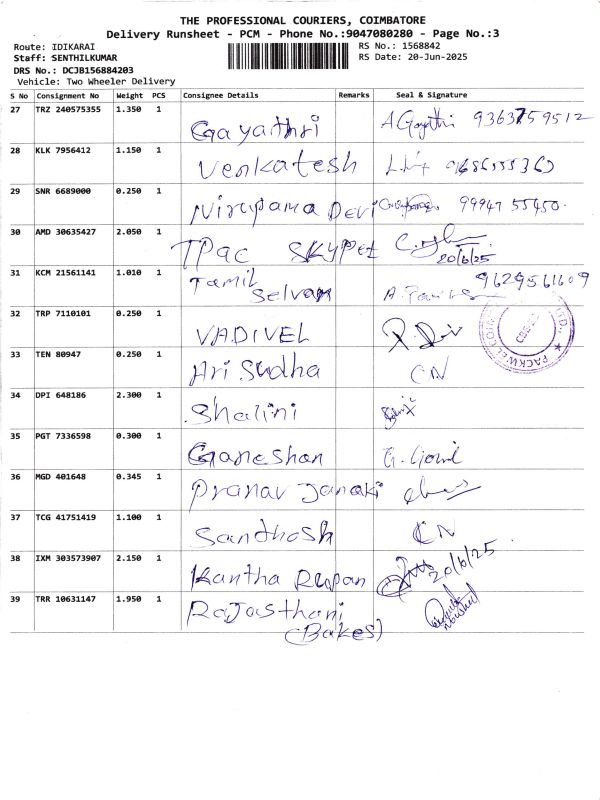 THE PROFESSIONAL COURIERS, COIMBATORE
Delivery Runsheet - PCM - Phone No.:9047080280 - Page No.:3
Route: IDIKARAI
RS No.: 1568842
Staff: SENTHILKUMAR
RS Date: 20-Jun-2025
DRS No.: DCJB156884203
Vehicle: Two Wheeler Delivery
S No Consignment No Weight PCS Consignee Details Remarks Seal & Signature
27 TRZ 240575355 1.350 1 Gayathri 9363759512
28 KLK 7956412 1.150 1 Venkatesh
29 SNR 6689000 0.250 1 Nirupama Devi 99947 55450
30 AMD 30635427 2.050 1 TPac SKYPET
20/6/25
31 KCM 21561141 1.010 1 Tamil Selvam 9629561609
32 TRP 7110101 0.250 1 VADIVEL
33 TEN 80947 0.250 1 Ari Sudha CN
34 DPI 648186 2.300 1 Shalini
35 PGT 7336598 0.300 1 Ganeshan
36 MGD 401648 0.345 1 Pranav Janaki
37 TCG 41751419 1.100 1 Santhosh CN
38 IXM 303573907 2.150 1 Kantha Rupan 20/6/25
39 TRR 10631147 1.950 1 Rajasthani
(Bakes)